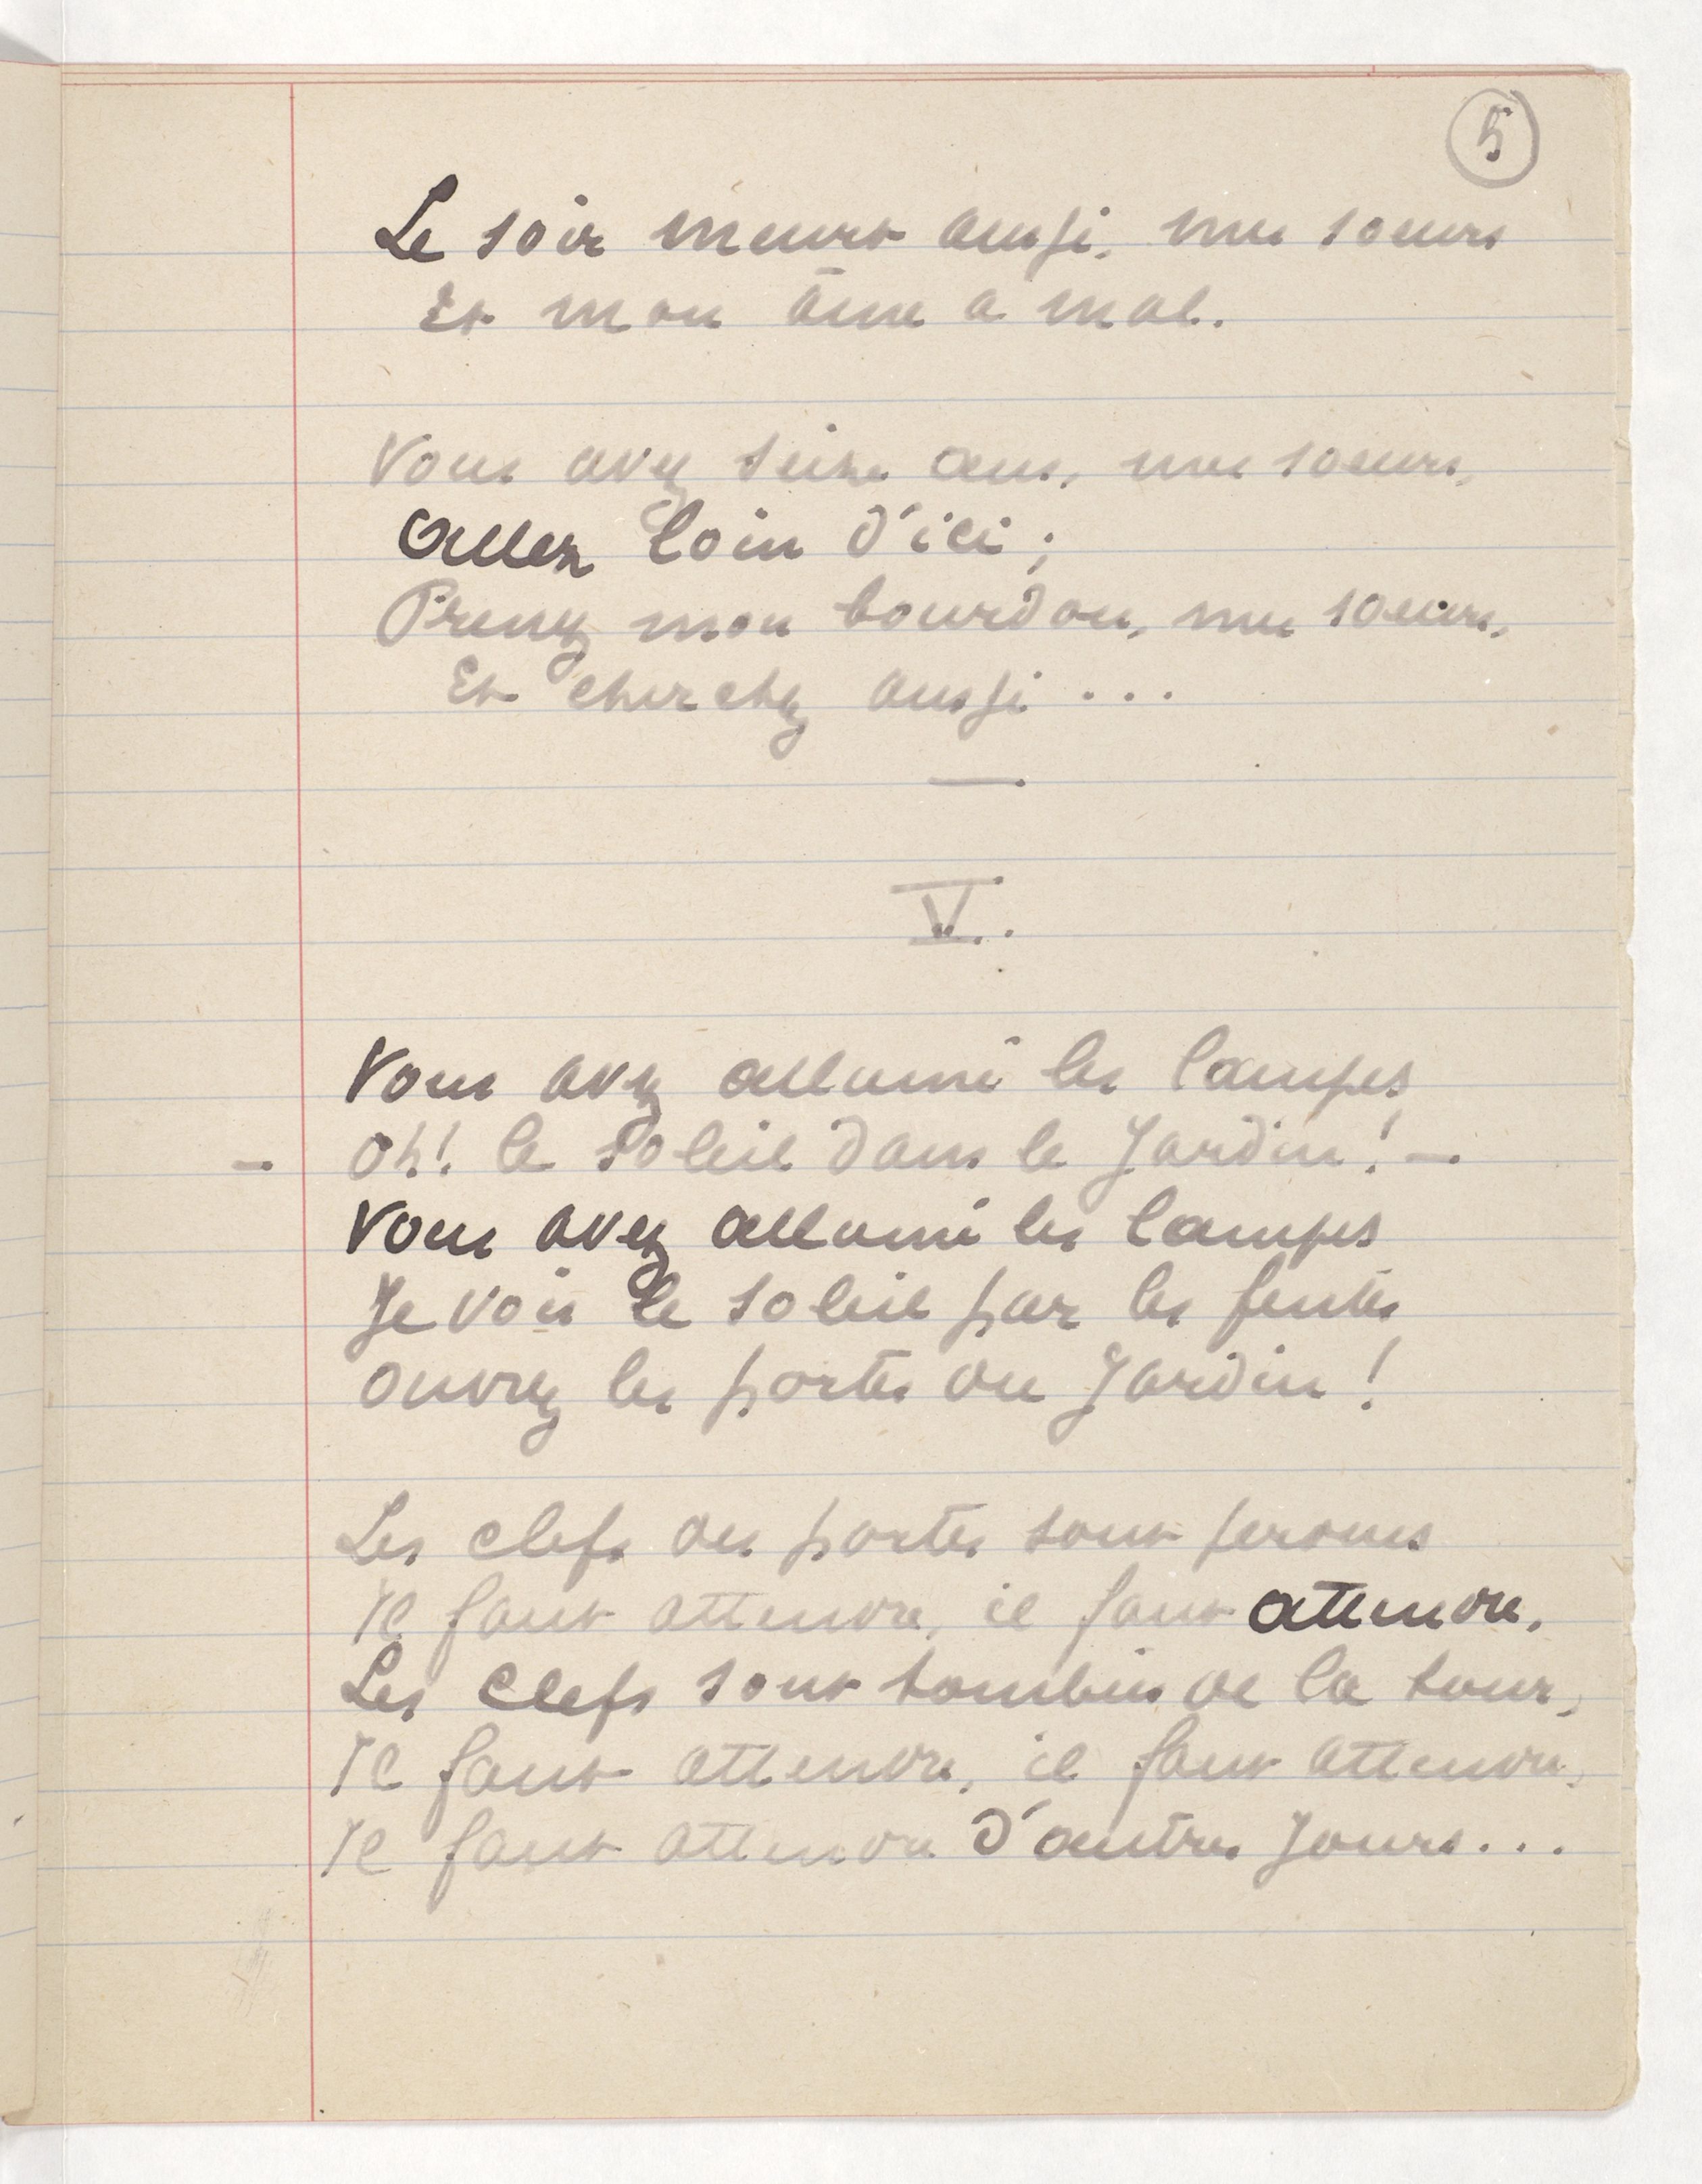 5
Le soir meurt aussi, mes soeurs
Et mon âme a mal.
Vous avez seize ans, mes soeurs,
Allez loin d'ici ;
Prenez mon bourdon, mes soeurs,
Et cherchez aussi ...
—
V.
Vous avez allumé les lampes
– Oh! le soleil dans le Jardin! –
Vous avez allumé les lampes
Je vois le soleil par les fentes
Ouvrez les portes du Jardin!
Les clefs des portes sont perdues
Il faut attendre, il faut attendre,
Les clefs sont tombées de la tour,
Il faut attendre, il faut attendre,
Il faut attendre d'autres Jours...